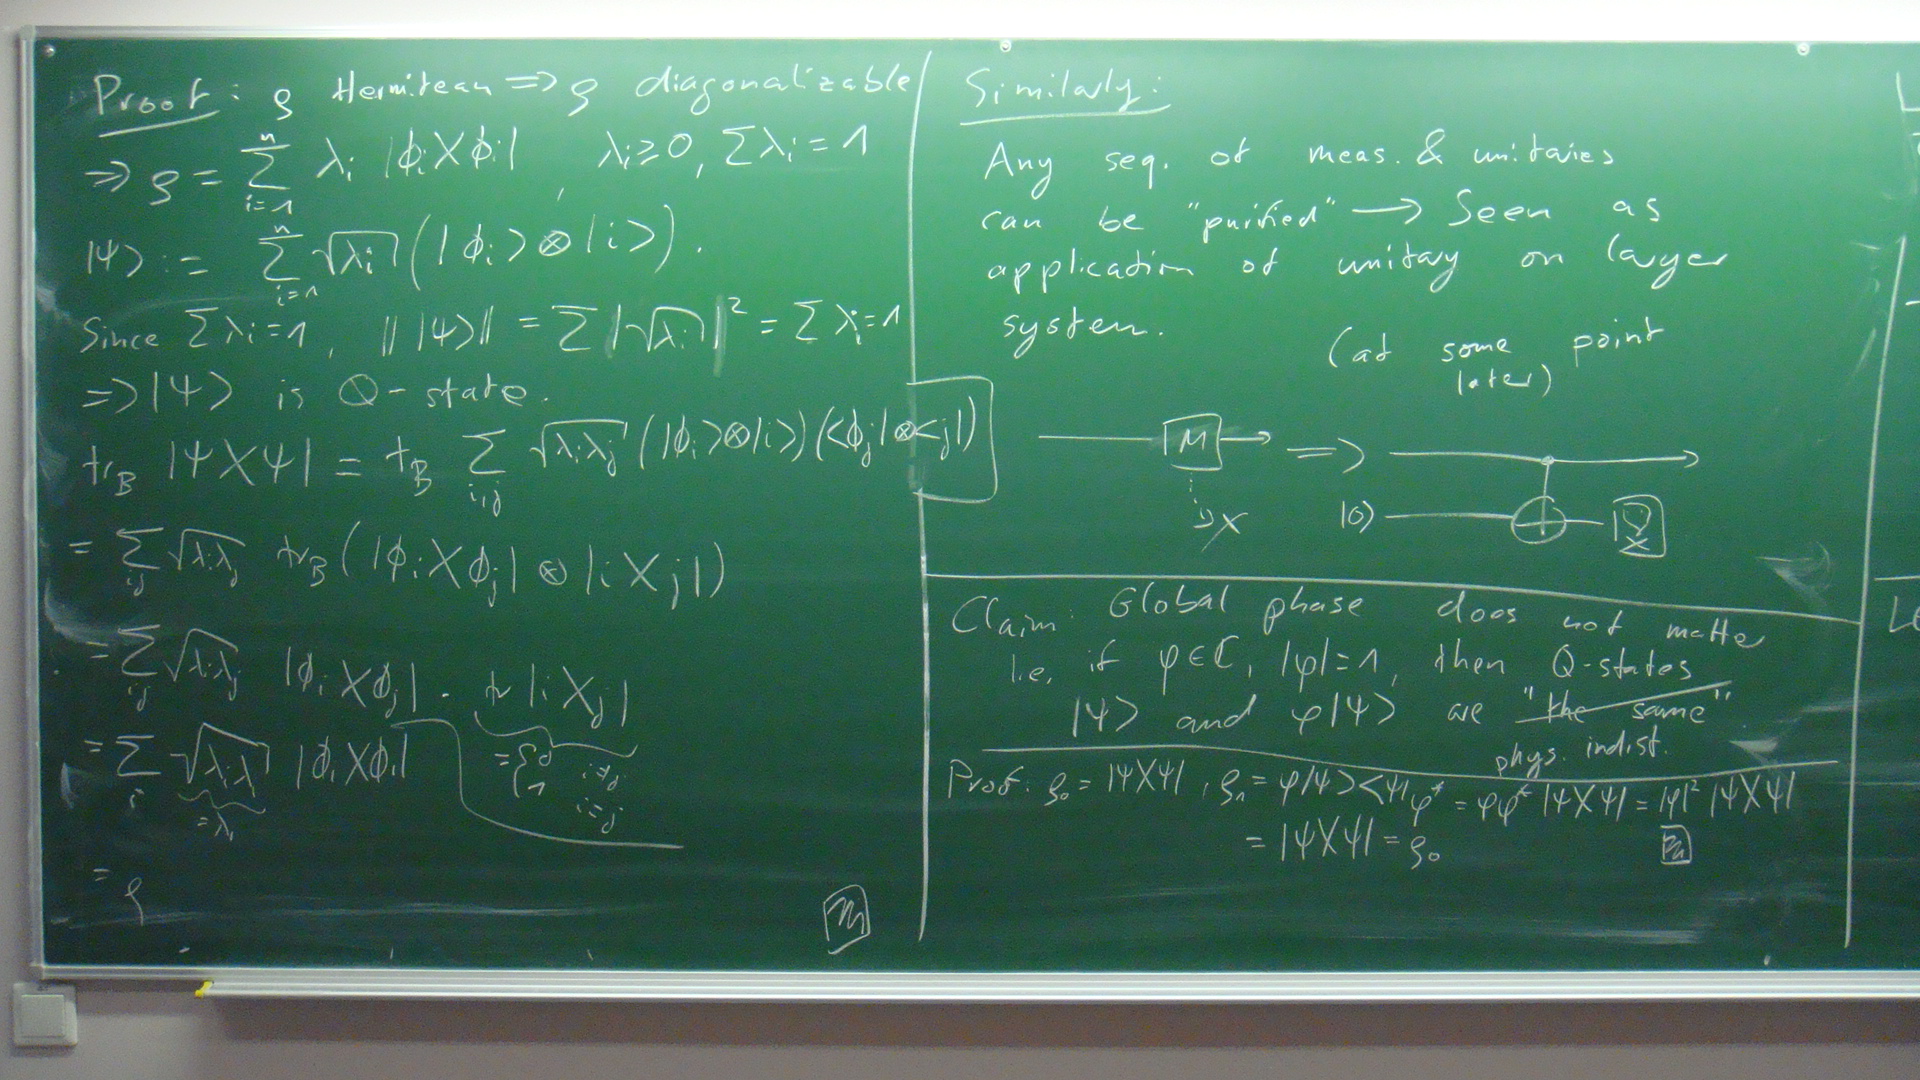 Proof: ρ Hermitean => ρ diagonalizable
=> ρ = Σ_{i=1}^{n} λi |ϕi X ϕi|, λi ≥ 0, Σλi = 1
|ψ> := Σ_{i=1}^{n} √λi (|ϕi> ⊗ |i>).
Since Σλi = 1, || |ψ> || = Σ |√λi|² = Σλi = 1
=> |ψ> is Q-state.
tr_B |ψXψ| = tr_B Σ_{i,j} √λiλj (|ϕi>⊗|i>)(<ϕj|⊗<j|)
= Σ_{ij} √λiλj tr_B(|ϕi X ϕj| ⊗ |i X j|)
= Σ_{ij} √λiλj |ϕi X ϕj| · tr |i X j|
= {0 i≠j
1 i=j
= Σ_i √λiλi |ϕi X ϕi|
= λi
= ρ
Similarly:
Any seq. of meas. & unitaries
can be "purified" → Seen as
application of unitary on larger
system.
(at some point
later)
M =>
X
|0>
X
Claim: Global phase does not matter
I.e. if φ∈ℂ, |φ|=1, then Q-states
|ψ> and φ|ψ> are "the same"
phys. indist.
Proof: ρ₀ = |ψXψ|, ρ₁ = φ|ψ><ψ|φ* = φφ* |ψXψ| = |φ|² |ψXψ|
= |ψXψ| = ρ₀